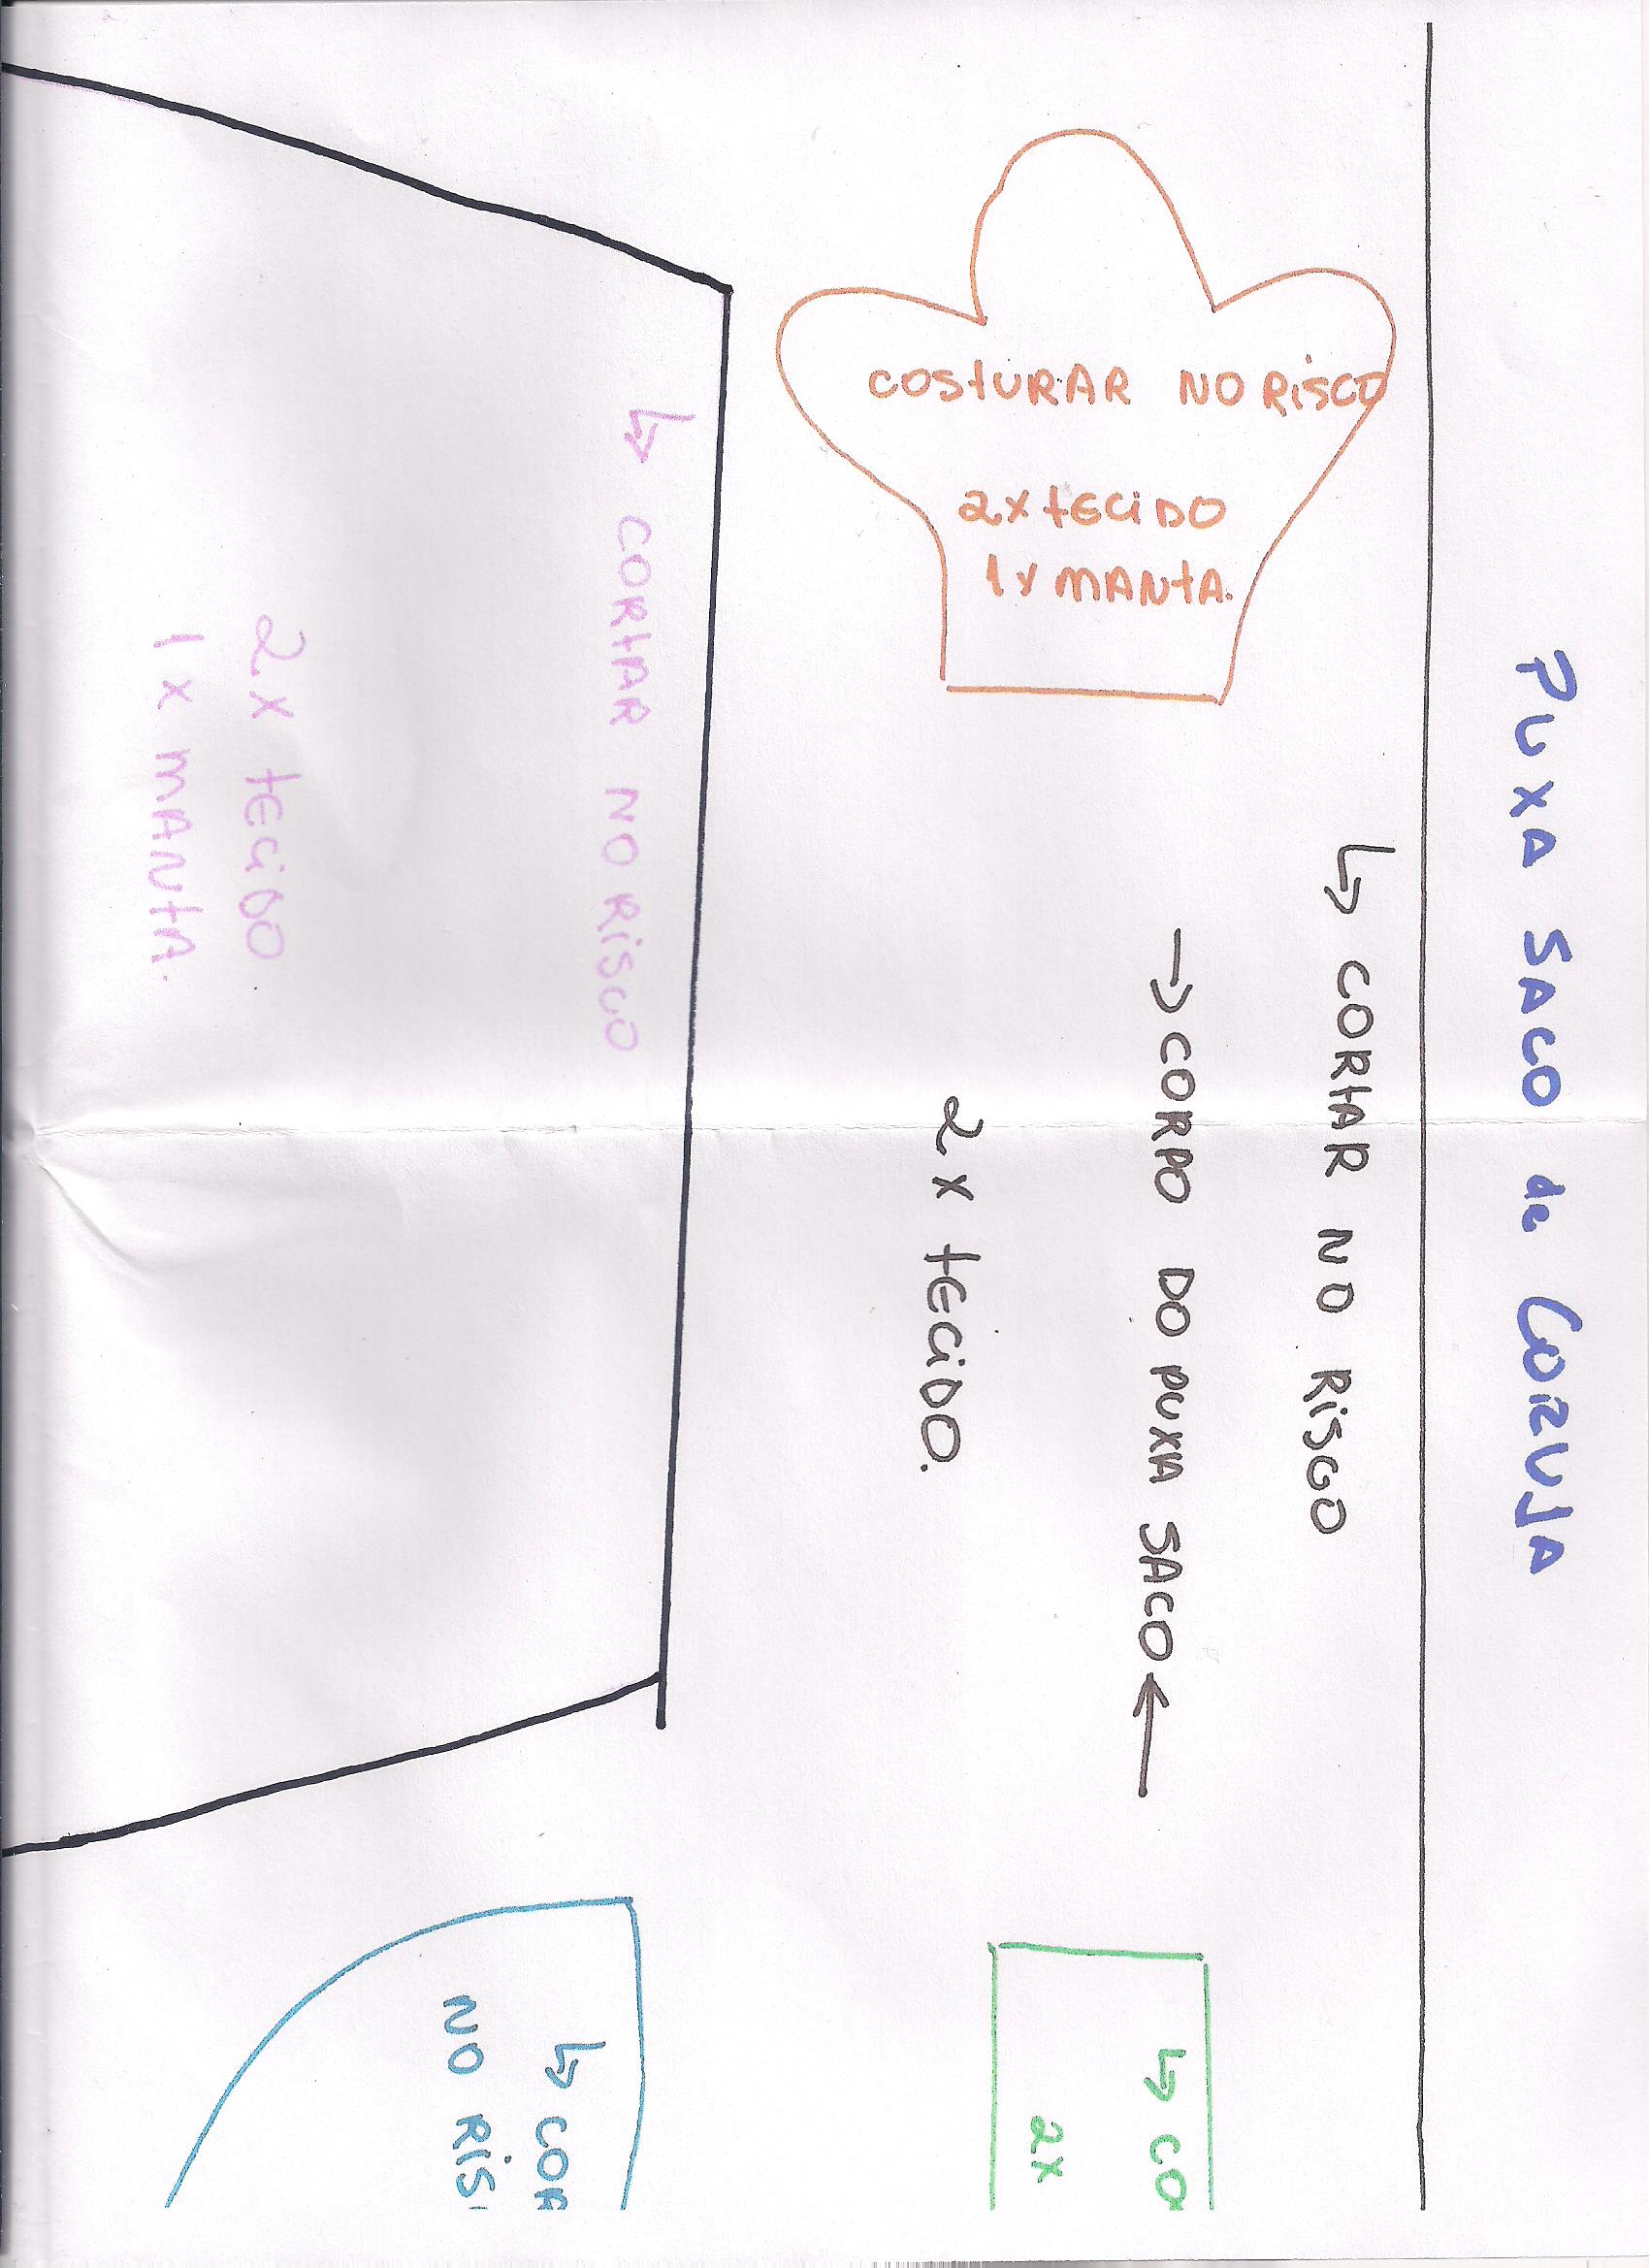 PUXA SACO de CORUJA
↳ CORTAR NO RISCO
→ CORPO DO PUXA SACO ←
2x tECiDO.
COStURAR NO RiSCO
2x tECiDO
1x MANtA.
↳ CORtAR NO RiSCO
2x tECiDO
1x MANtA.
↳ CO
2x
↳ COR
NO RiS